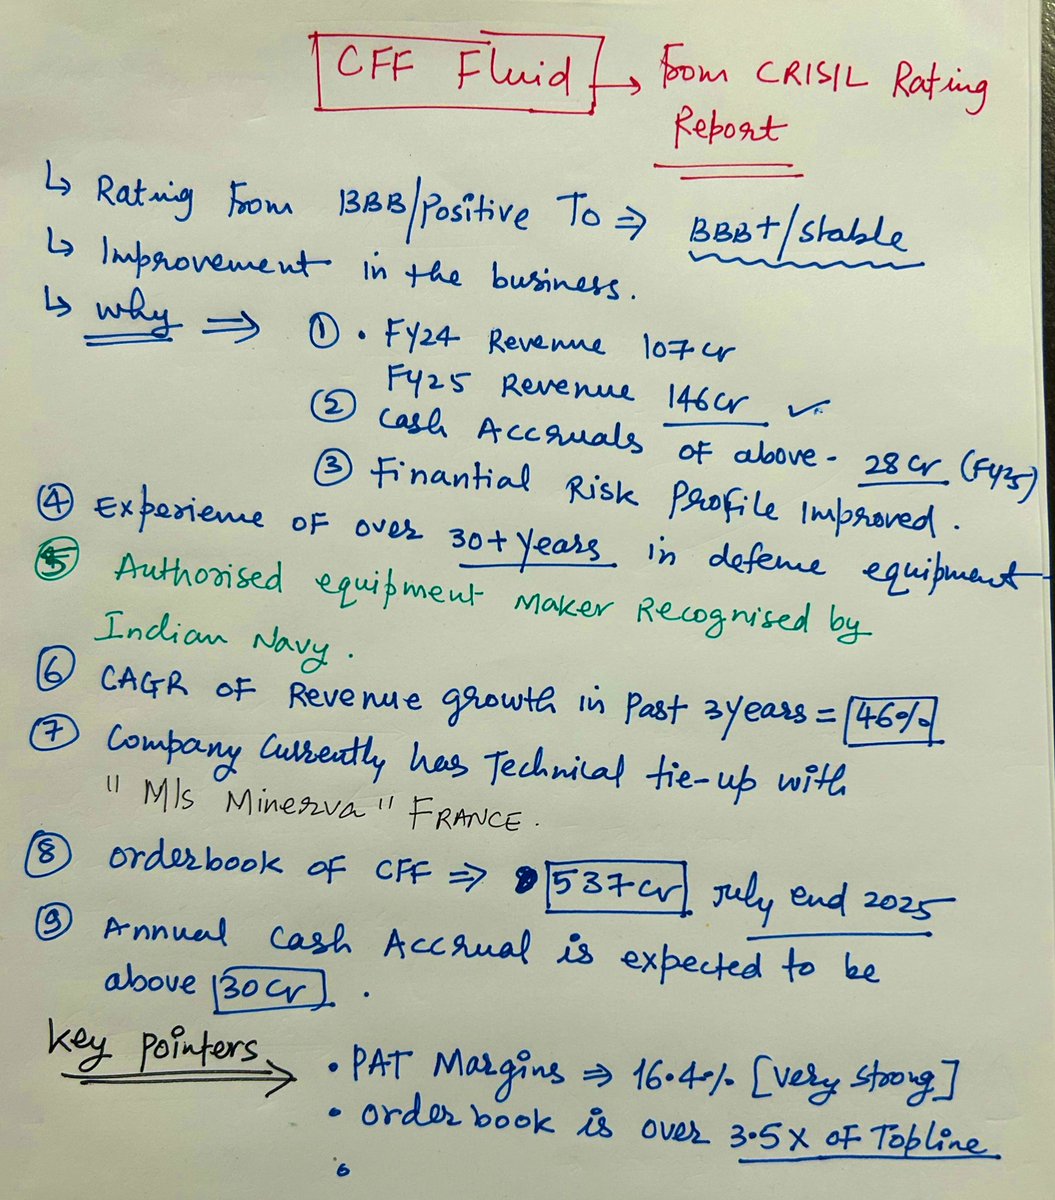 CFF Fluid → From CRISIL Rating
Report
↳ Rating From BBB/Positive To ⇒ BBB+/Stable
↳ Improvement in the business.
↳ why ⇒ ① • FY24 Revenue 107 cr
FY25 Revenue 146 cr ✓
② Cash Accruals of above - 28 cr (FY25)
③ Finantial Risk Profile Improved.
④ Experience of over 30+ years in defence equipment
⑤ Authorised equipment Maker Recognised by
Indian Navy.
⑥ CAGR of Revenue growth in Past 3 years = 46%
⑦ Company Currently has Technical tie-up with
"M/s Minerva" FRANCE.
⑧ orderbook of CFF ⇒ 537 cr July end 2025
⑨ Annual Cash Accrual is expected to be
above 30 Cr.
Key Pointers → • PAT Margins ⇒ 16.4% [very strong]
• orderbook is over 3.5 X of Topline